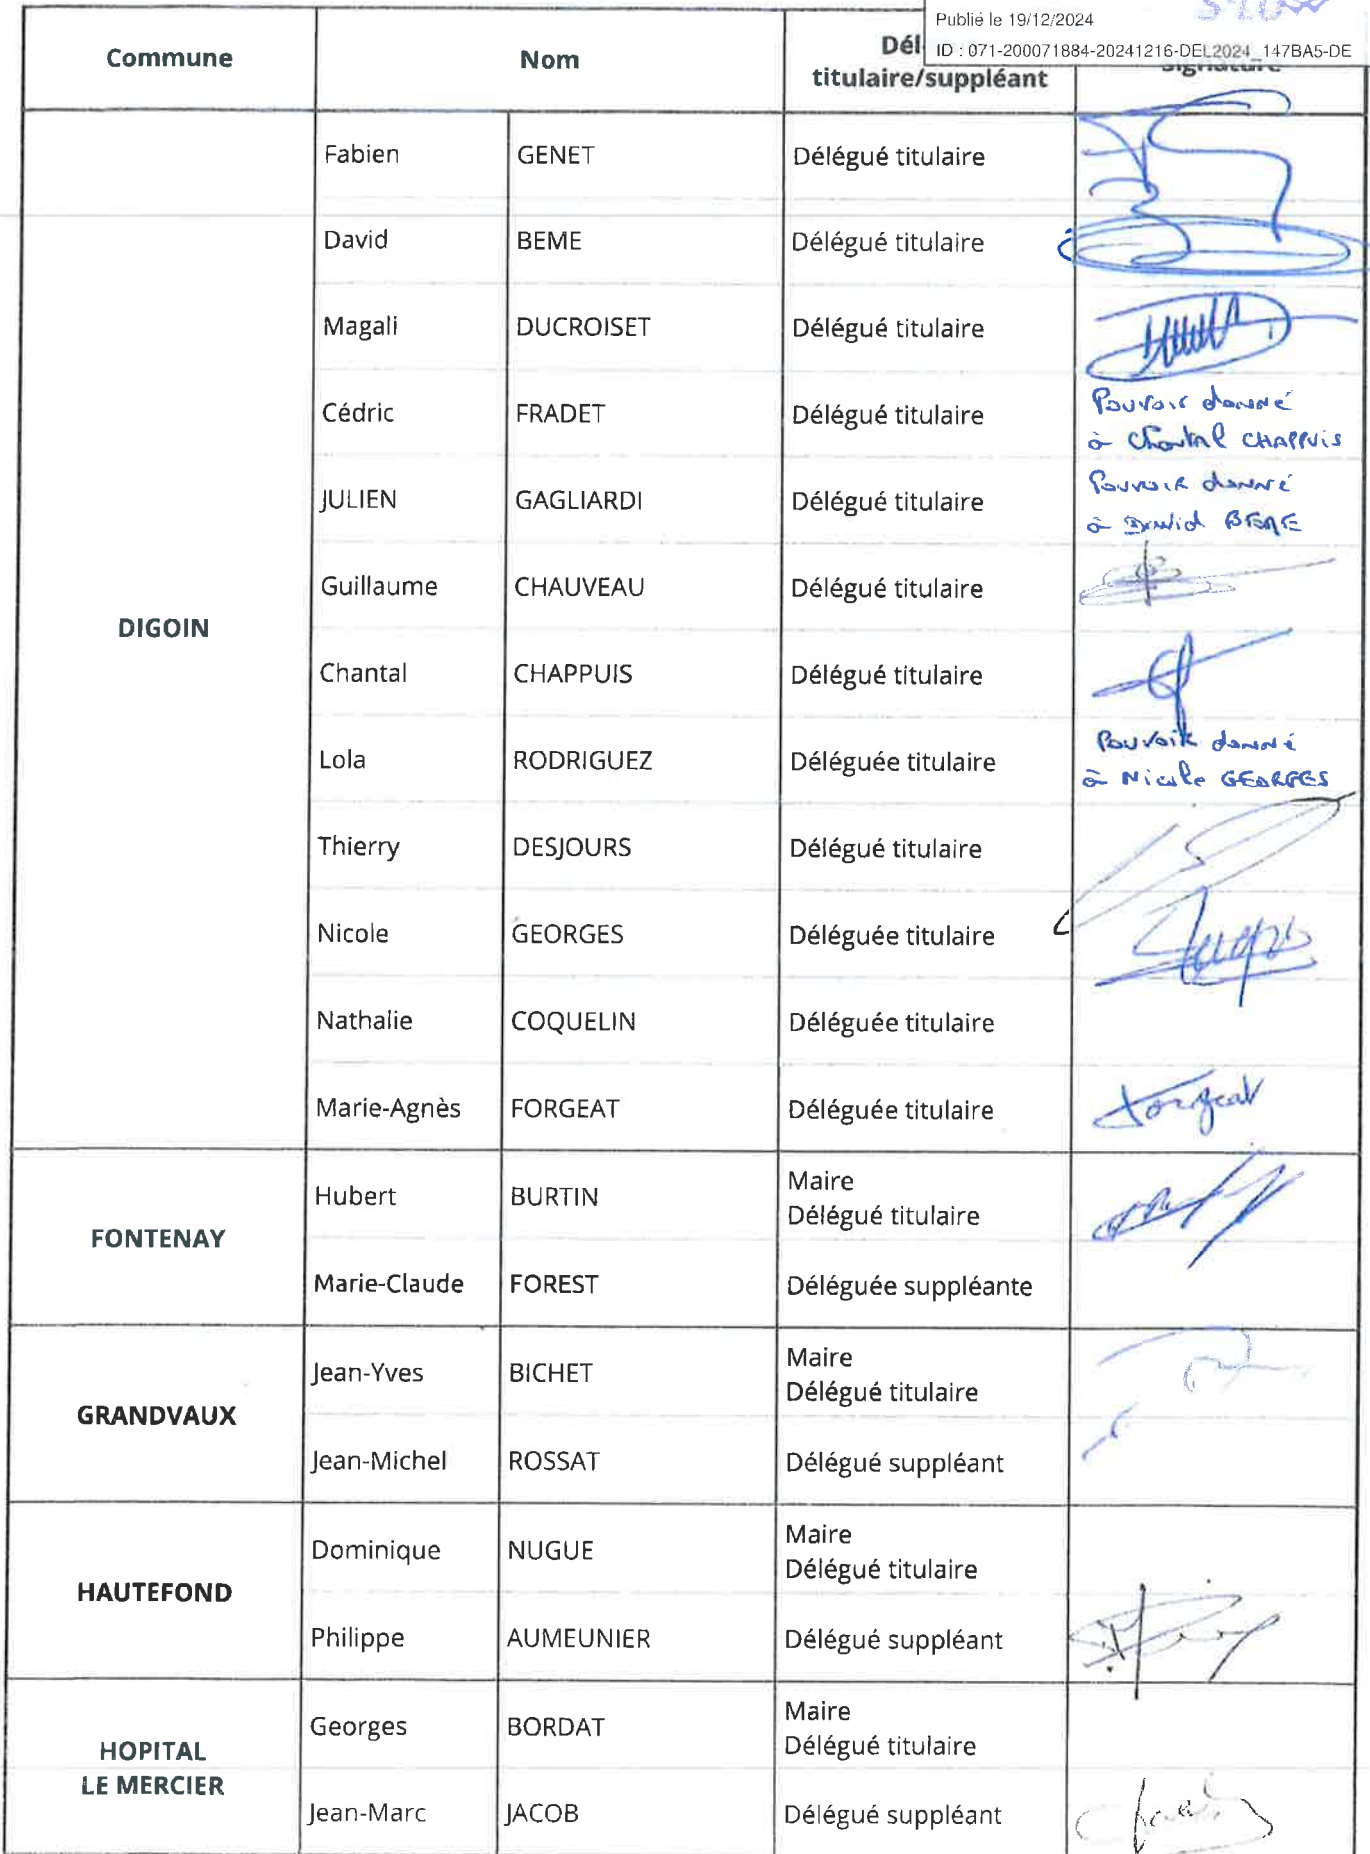 Publié le 19/12/2024
ID : 071-200071884-20241216-DEL2024_147BA5-DE
Commune Nom Dél
titulaire/suppléant Signature
Fabien GENET Délégué titulaire
David BEME Délégué titulaire
Magali DUCROISET Délégué titulaire
Cédric FRADET Délégué titulaire Pouvoir donné
à Chantal CHAPPUIS
JULIEN GAGLIARDI Délégué titulaire Pouvoir donné
à David BEME
Guillaume CHAUVEAU Délégué titulaire
DIGOIN
Chantal CHAPPUIS Délégué titulaire
Lola RODRIGUEZ Déléguée titulaire Pouvoir donné
à Nicole GEORGES
Thierry DESJOURS Délégué titulaire
Nicole GEORGES Déléguée titulaire
Nathalie COQUELIN Déléguée titulaire
Marie-Agnès FORGEAT Déléguée titulaire Forgeat
FONTENAY
Hubert BURTIN Maire
Délégué titulaire
Marie-Claude FOREST Déléguée suppléante
GRANDVAUX
Jean-Yves BICHET Maire
Délégué titulaire
Jean-Michel ROSSAT Délégué suppléant
HAUTEFOND
Dominique NUGUE Maire
Délégué titulaire
Philippe AUMEUNIER Délégué suppléant
HOPITAL
LE MERCIER
Georges BORDAT Maire
Délégué titulaire
Jean-Marc JACOB Délégué suppléant